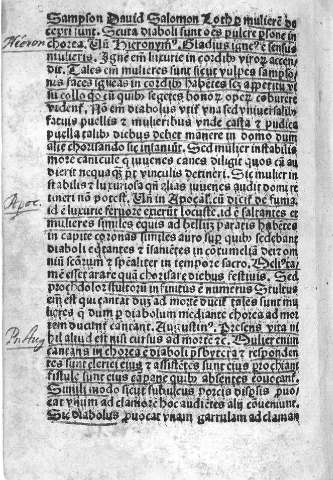 Sampson Dauid Salomon Loth ꝑ mulierē de
cepti sunt. Scuta diaboli sunt oēs pulcre ꝑsone in
Hieron
chorea. Uñ Hieronymꝰ. Gladius igneꝰ ē sensus
mulieris. Ignē em luxurie in cordibꝰ viroꝝ accen
dit. Tales em mulieres sunt sicut vulpes sampso
nis faces igneas in cordibꝰ habētes sed aꝑtitu vi
sui collo qͦ cū quibꝰ segetes honoꝝ operū cōburere
vident. Nō em diabolus vtit vna sed vniuersalibꝰ
factus puellis et mulieribus vnde casta et pudica
puella talibꝰ diebus debet manere in domo dum
alie chorisando se insaniūt. Sed mulier instabilis
more canicule q̄ iuuenes canes diligit quos cū au
dierit nequaq̄ꝫ ꝑ vinculis detineri. Sic mulier in
stabilis et luxuriosa q̄n alias iuuenes audit domi re
Apoc.
tineri nō potest. Uñ in Apocal. cū dicit de fuma.
id ē luxurie feruore exierūt locuste. id ē saltantes et
mulieres similes equis ad bellū paratis habētes
in capite coronas similes auro super quibꝰ sedebant
diaboli eqͥtantes et saniētes in cōtumeliā dei om
niū scōrum et spealiter in tempore sacro.
me esset arare quā chorisare diebus festiuis. Sed
prochdolor stultorū infinitus ē numerus Stultus
em est qui cantat dū ad mortē ducit tales sunt mu
lieres q̄ dum ꝑ diabolum mediante chorea ad mor
tem ducunt cantant. Augustinꝰ. Presens vita ni
Pn. Aug
hil aliud est nisi cursus ad mortē ec̄. Mulier enim
cantans in chorea ē diaboli pn̄sbytera et responden
tes sunt clerici eiꝰ et assistētes sunt eius prochiani
fistule sunt eius cāpane quibꝰ absentes cōuocant.
Simili modo sicut subulcus porcis dispsis ꝓuo
cat vnum ad clamorē hoc audiētes alij cōueniunt.
Sic diabolus ꝓuocat vnam garrulam ad claman